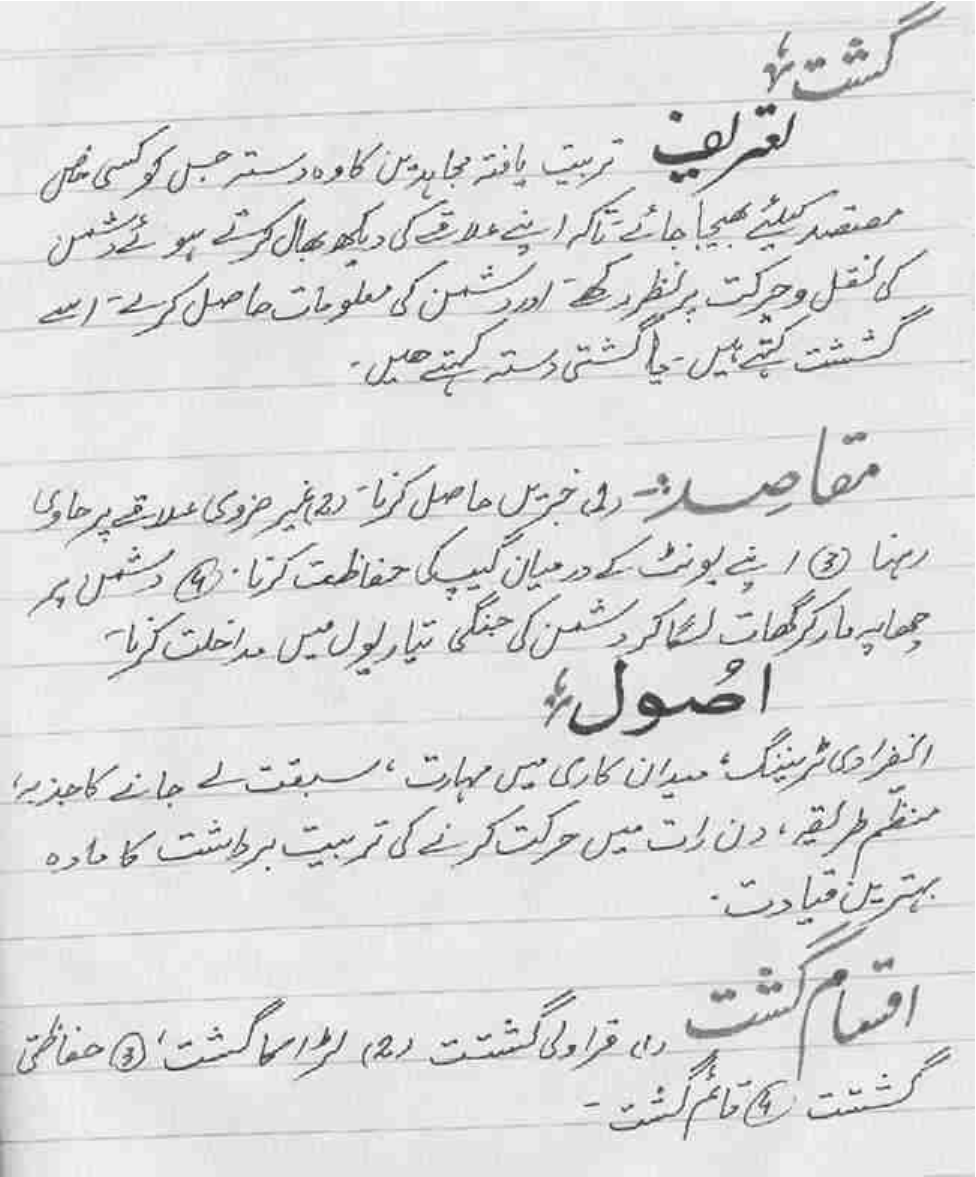 گشت
تعریف تربیت یافتہ مجاہدین کا وہ دستہ جس کو کسی خاص
مقصد کیلئے بھیجا جائے تاکہ اپنے علاقے کی دیکھ بھال کرتے ہوئے دشمن
کی نقل و حرکت پر نظر رکھے۔ اور دشمن کی معلومات حاصل کرے۔ اسے
گشت کہتے ہیں۔ یا گشتی دستہ کہتے ھیں۔
مقاصد:۔ (1) خبریں حاصل کرنا۔ (2) غیر ضروی علاقے پر حاوی
رہنا (3) اپنے یونٹ کے درمیان گیپ کی حفاظت کرنا۔ (4) دشمن پر
چھاپہ مار کر گھات لگا کر دشمن کی جنگی تیاریوں میں مداخلت کرنا۔
اصُول
انفرادی ٹریننگ، میدان کاری میں مہارت، سبقت لے جانے کا جذبہ،
منظّم طریقہ، دن رات میں حرکت کرنے کی تربیت برداشت کا مادہ
بہترین قیادت۔
اقسام گشت (1) قراولی گشت (2) لڑاکا گشت، (3) حفاظتی
گشت (4) قائم گشت۔